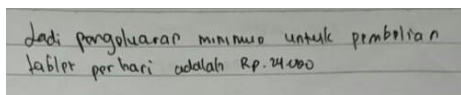 dadi pengeluaran minimum untuk pembelian
tablet perhari adalah Rp.24.000